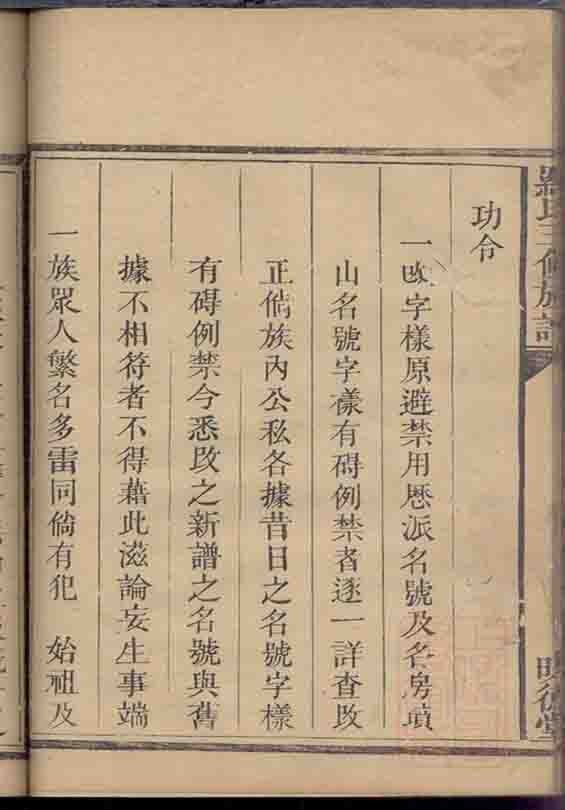 功令
一改字樣原避禁用歷派名號及各房墳
山名號字樣有碍例禁者逐一詳查改
正倘族內公私各據昔日之名號字樣
有碍例禁今悉改之新譜之名號與舊
據不相符者不得藉此滋論妄生事端
一族眾人繁名多雷同倘有犯　始祖及